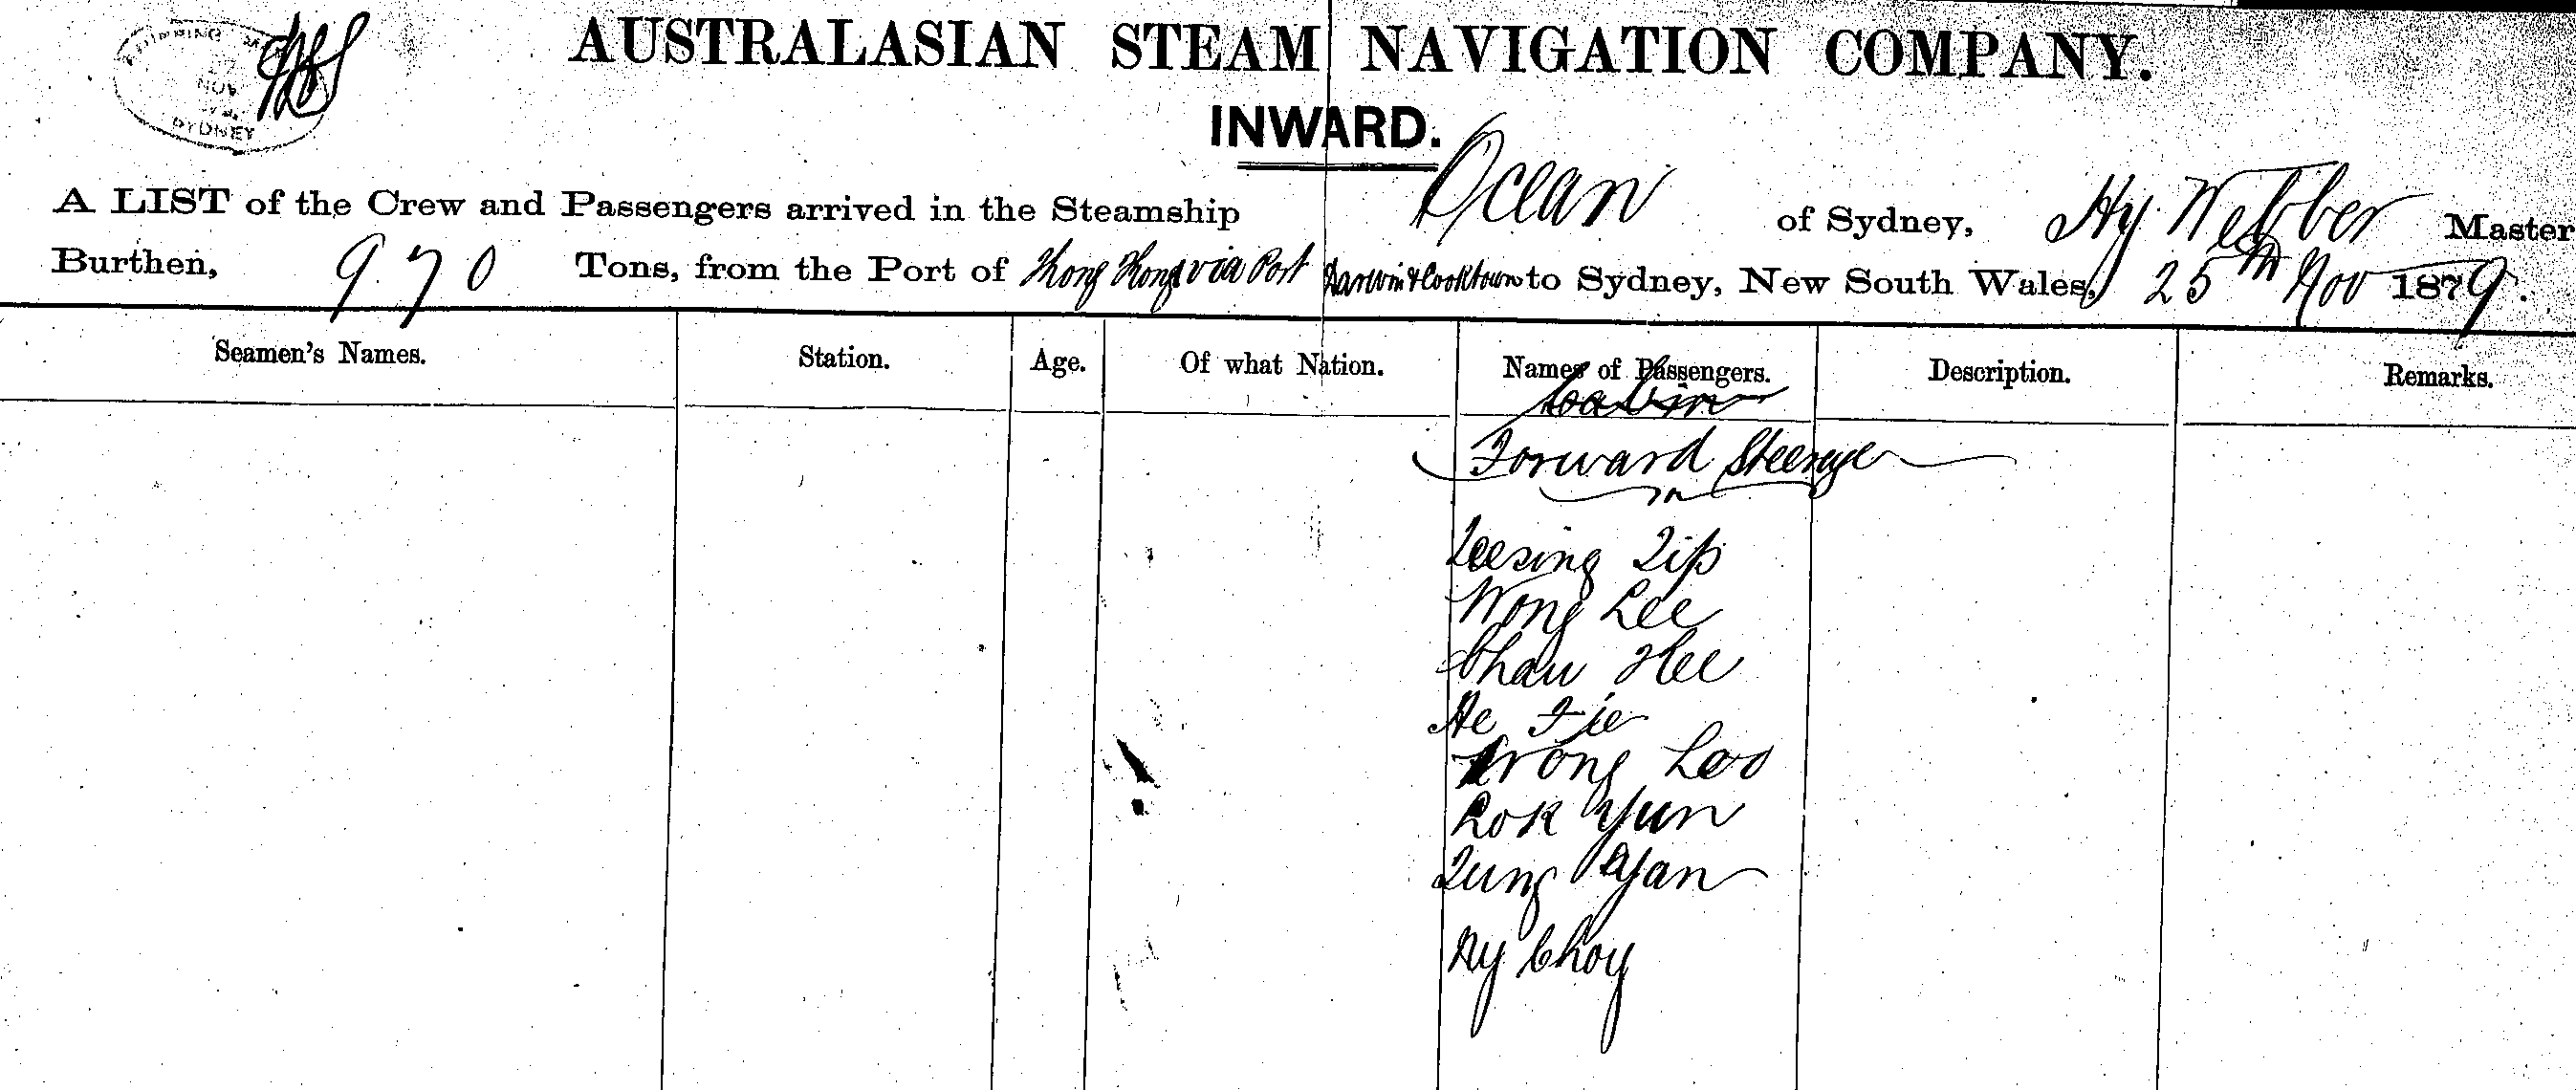 SHIPPING
NOV
SYDNEY
AUSTRALASIAN STEAM NAVIGATION COMPANY.
INWARD.
A LIST of the Crew and Passengers arrived in the Steamship Ocean of Sydney, Hy Webber Master
Burthen, 970 Tons, from the Port of Hong Kong via Port Darwin & Cooktown to Sydney, New South Wales, 25th Nov 1879.
Seamen's Names. Station. Age. Of what Nation. Names of Passengers. Description. Remarks.
Cabin
Forward Steerage
Leesing Lip
Wong Lee
Chaw Hee
Ae Fie
Wong Loo
Lok Yun
Lung Yan
Ay Choy